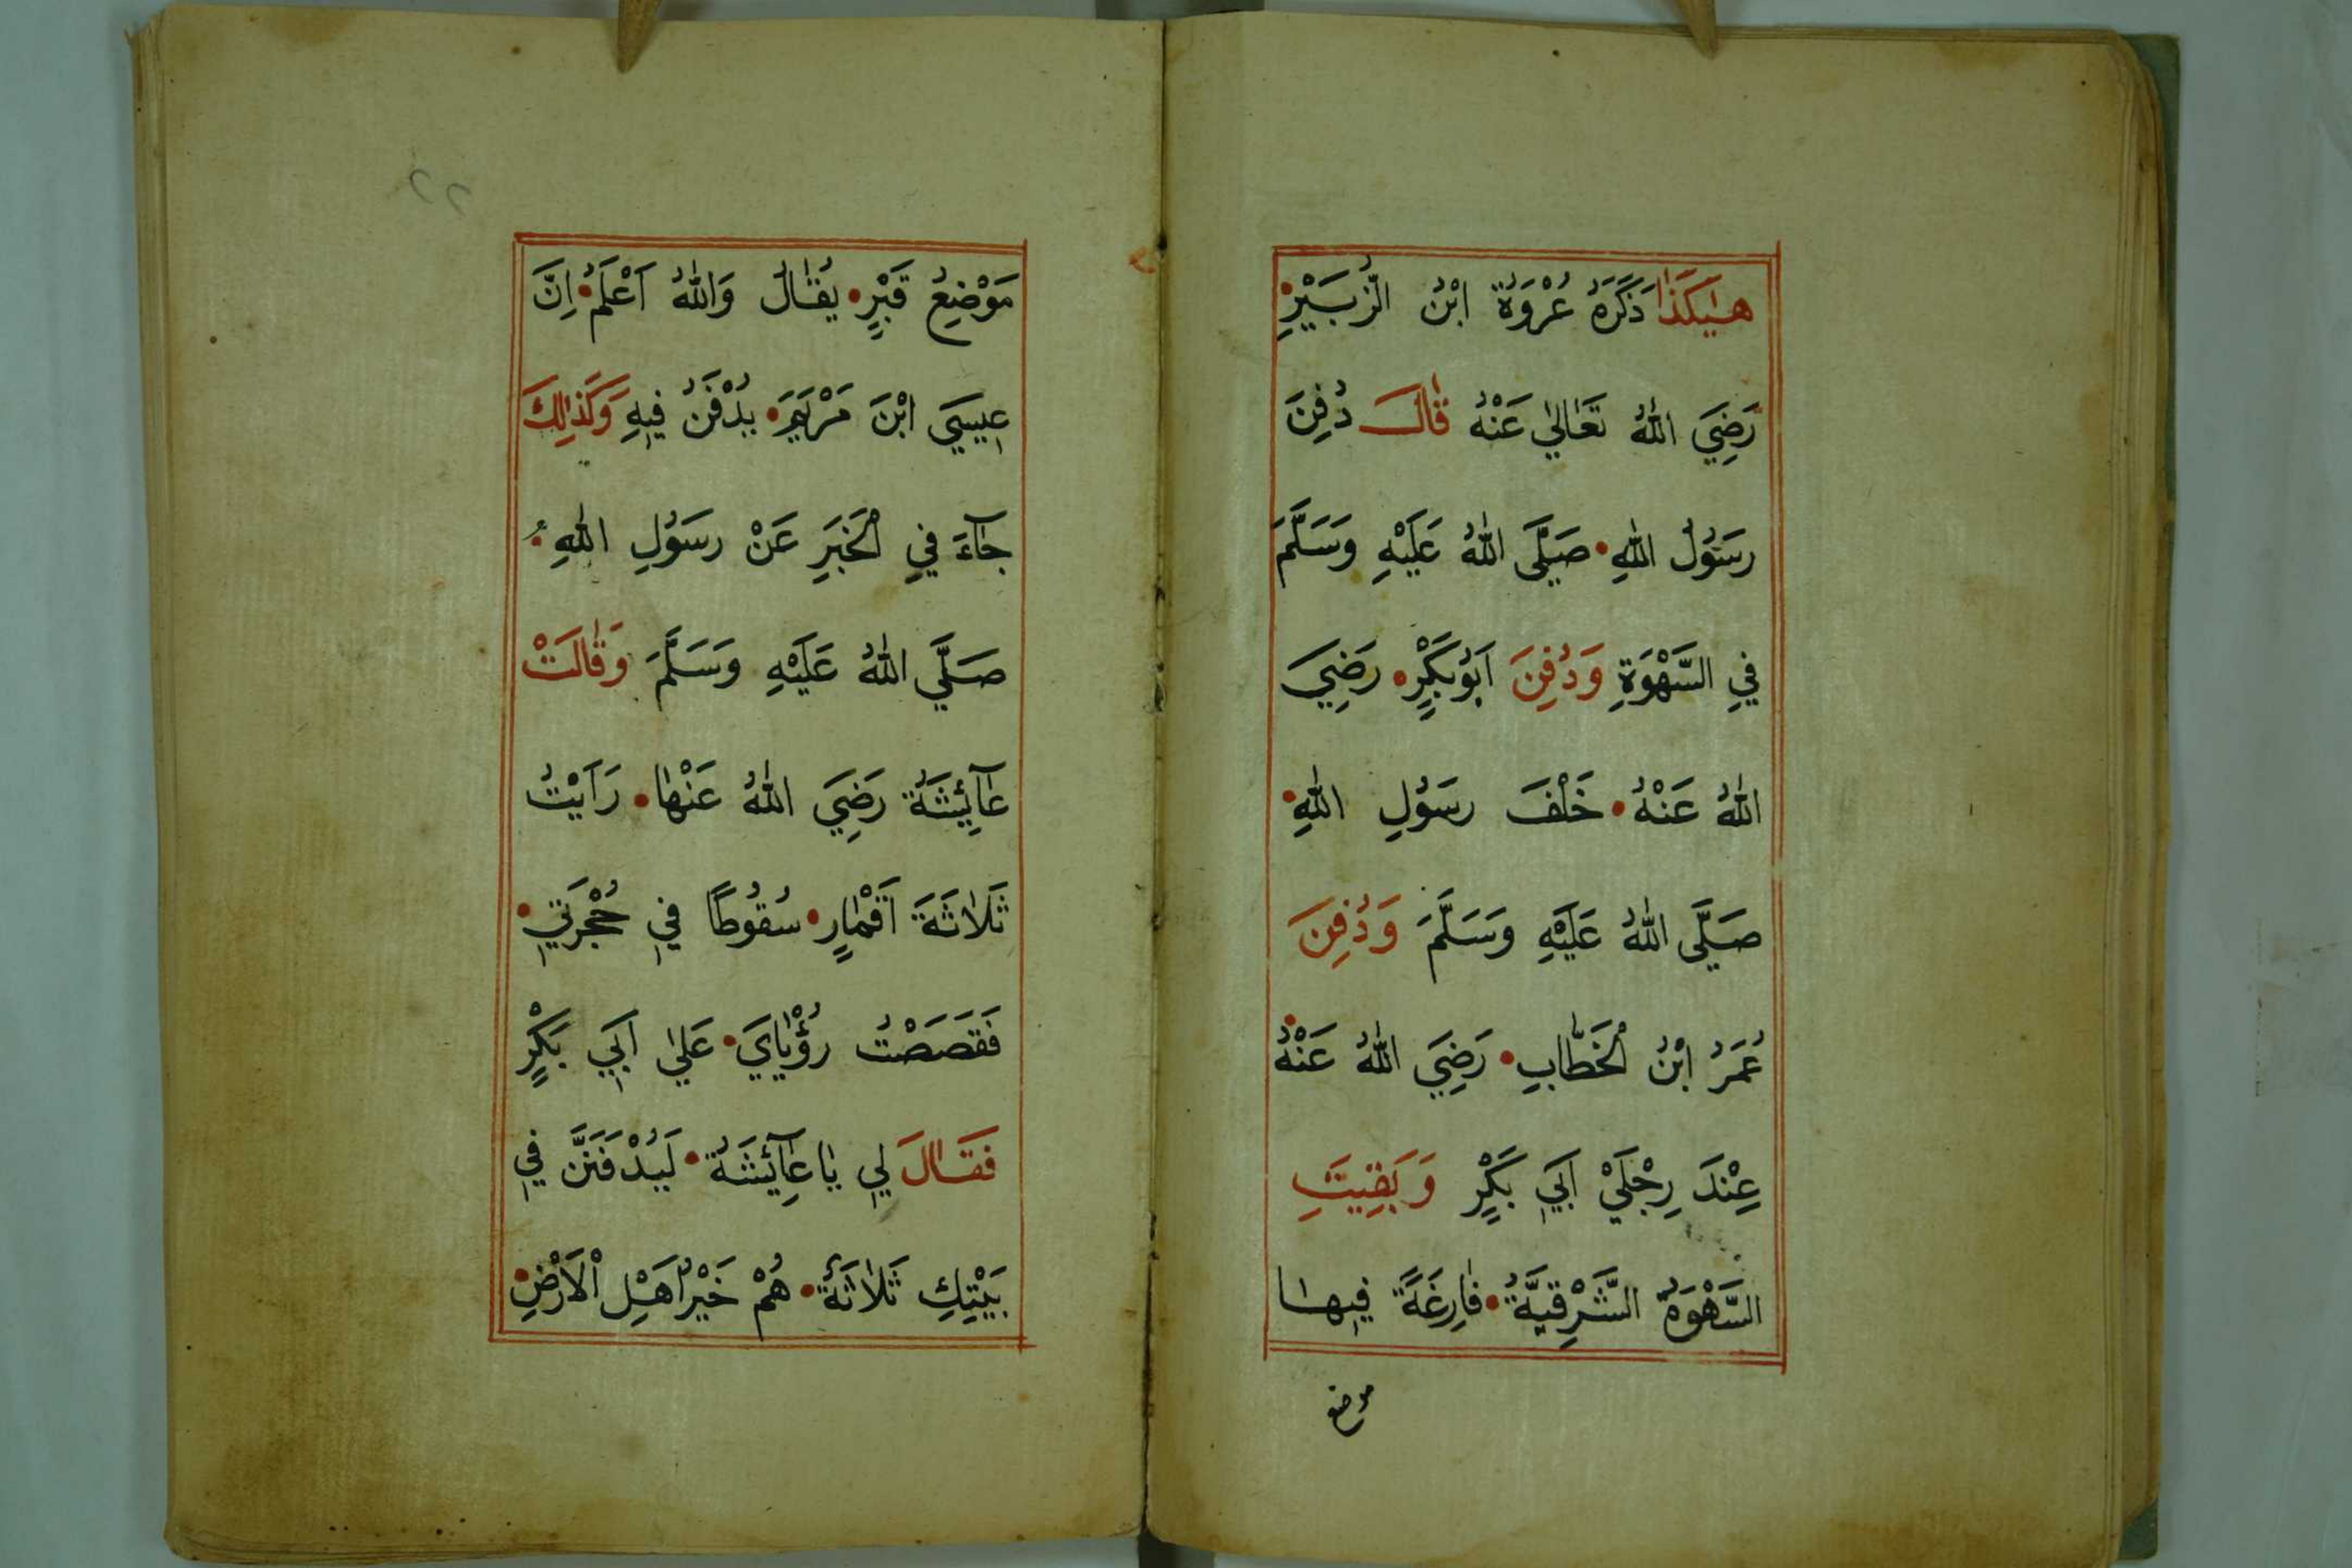 هٰكَذَا ذَكَرَهُ عُرْوَةُ ابْنُ الزُّبَيْرِ
رَضِيَ اللهُ تَعَالٰي عَنْهُ قَالَ دُفِنَ
رَسُوْلُ اللهِ صَلَّى اللهُ عَلَيْهِ وَسَلَّمَ
فِي السَّهْوَةِ وَدُفِنَ اَبُوْبَكْرٍ رَضِيَ
اللهُ عَنْهُ خَلْفَ رَسُوْلِ اللهِ
صَلَّى اللهُ عَلَيْهِ وَسَلَّمَ وَدُفِنَ
عُمَرُ ابْنُ الْخَطَّابِ رَضِيَ اللهُ عَنْهُ
عِنْدَ رِجْلَيْ اَبِي بَكْرٍ وَبَقِيَتِ
السَّهْوَةُ الشَّرْقِيَّةُ فَارِغَةً فِيهَا
موضع
٢٢
مَوْضِعُ قَبْرٍ يُقَالُ وَاللهُ اَعْلَمُ اِنَّ
عِيسَي ابْنَ مَرْيَمَ يُدْفَنُ فِيهِ وَكَذٰلِكَ
جَآءَ فِي الْخَبَرِ عَنْ رَسُوْلِ اللهِ
صَلَّي اللهُ عَلَيْهِ وَسَلَّمَ وَقَالَتْ
عَآئِشَةُ رَضِيَ اللهُ عَنْهَا رَاَيْتُ
ثَلَاثَةَ اَقْمَارٍ سُقُوطًا فِي حُجْرَتِي
فَقَصَصْتُ رُؤْيَايَ عَلٰي اَبِي بَكْرٍ
فَقَالَ لِي يَا عَآئِشَةُ لَيُدْفَنَنَّ فِي
بَيْتِكِ ثَلَاثَةٌ هُمْ خَيْرُ اَهْلِ الْاَرْضِ